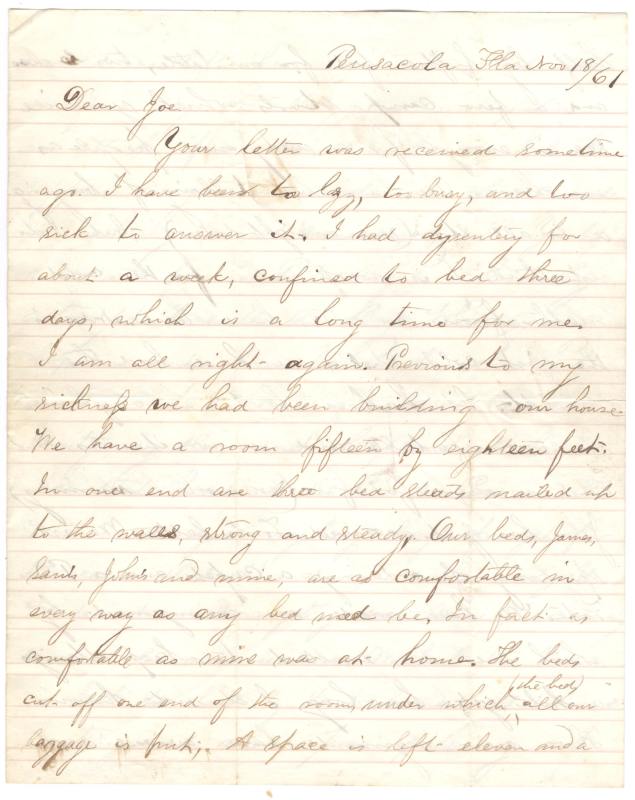 Pensacola Fla Nov 18/61
Dear Joe
Your letter was received sometime
ago. I have been to lazy, to busy, and too
sick to answer it. I had dysentery for
about a week, confined to bed three
days, which is a long time for me.
I am all right again. Previous to my
sickness we had been building our house
We have a room fifteen by eighteen feet.
In one end are three bed steads nailed up
to the walls, strong and steady, Our beds, James,
Sam's, John's and mine, are as comfortable in
every way as any bed need be, In fact as
comfortable as mine was at home. The beds
cut off one end of the room, under which (the bed) all our
baggage is put;. A space is left eleven and a